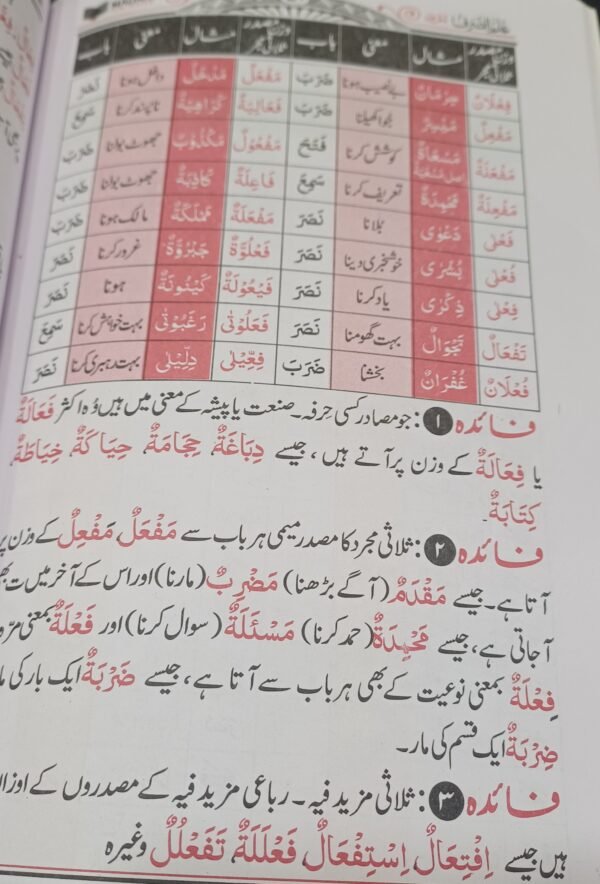 علم الصرف
وزن مصدر ثلاثی مجرد مثال معنی باب وزن مصدر ثلاثی مجرد مثال معنی باب
فِعْلَانٌ حِرْمَانٌ بے نصیب ہونا ضَرَبَ مَفْعَلٌ مَدْخَلٌ داخل ہونا نَصَرَ
مَفْعِلٌ مَيْسِرٌ جوا کھیلنا ضَرَبَ فَعَالِيَةٌ كَرَاهِيَةٌ ناپسند کرنا سَمِعَ
مَفْعَلَةٌ مَسْعَاةٌ کوشش کرنا فَتَحَ مَفْعُوْلٌ مَكْذُوْبٌ جھوٹ بولنا ضَرَبَ
مَفْعِلَةٌ مَحْمِدَةٌ تعریف کرنا سَمِعَ فَاعِلَةٌ كَاذِبَةٌ جھوٹ بولنا ضَرَبَ
فَعْلٰى دَعْوٰى بُلانا نَصَرَ مَفْعَلَةٌ مَمْلَكَةٌ مالک ہونا ضَرَبَ
فُعْلٰى بُشْرٰى خوشخبری دینا نَصَرَ فَعْلُوَّةٌ جَبْرُوَّةٌ غرور کرنا نَصَرَ
فِعْلٰى ذِكْرٰى یاد کرنا نَصَرَ فَيْعُوْلَةٌ كَيْنُوْنَةٌ ہونا نَصَرَ
تَفْعَالٌ تَجْوَالٌ بہت گھومنا نَصَرَ فَعَلُوْتٰى رَغَبُوْتٰى بہت خواہش کرنا سَمِعَ
فُعْلَانٌ غُفْرَانٌ بخشنا ضَرَبَ فِعِّيْلٰى دِلِّيْلٰى بہت رہبری کرنا نَصَرَ
فائدہ ۱: جو مصادر کسی حِرفہ۔ صنعت یا پیشہ کے معنی میں ہیں وُہ اکثر فَعَالَةٌ
یا فِعَالَةٌ کے وزن پر آتے ہیں، جیسے دِبَاغَةٌ، حِجَامَةٌ، حِيَاكَةٌ، خِيَاطَةٌ،
كِتَابَةٌ۔
فائدہ ۲: ثلاثی مجرد کا مصدر میمی ہر باب سے مَفْعَلٌ، مَفْعِلٌ کے وزن پر
آتا ہے۔ جیسے مَقْدَمٌ (آگے بڑھنا) مَضْرِبٌ (مارنا) اور اس کے آخر میں ت بھی
آ جاتی ہے، جیسے مَحْمِدَةٌ (حمد کرنا) مَسْئَلَةٌ (سوال کرنا) اور فَعْلَةٌ بمعنی مرّہ
فِعْلَةٌ بمعنی نوعیت کے بھی ہر باب سے آتا ہے، جیسے ضَرْبَةٌ ایک بار کی مار
ضِرْبَةٌ ایک قسم کی مار۔
فائدہ ۳: ثلاثی مزید فیہ۔ رباعی مزید فیہ کے مصدروں کے اوزان
ہیں جیسے اِفْتِعَالٌ، اِسْتِفْعَالٌ، فَعْلَلَةٌ، تَفَعْلُلٌ وغیرہ